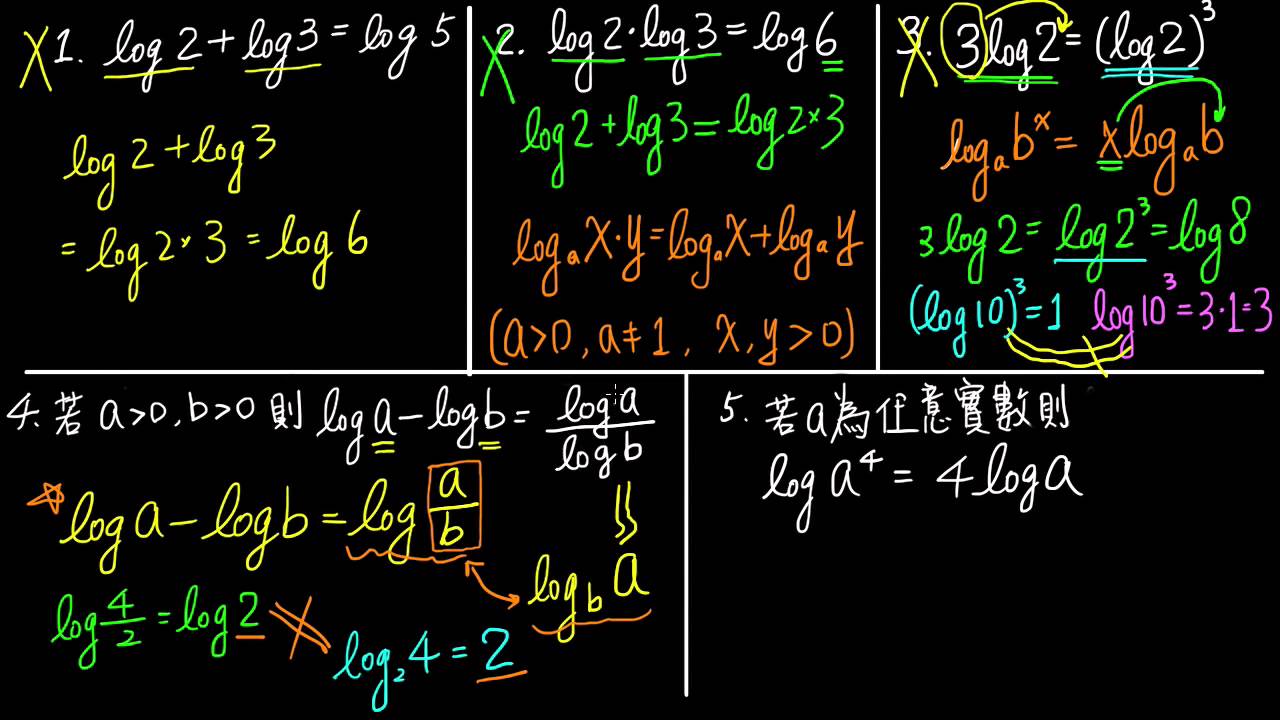 1. log 2 + log 3 = log 5
log 2 + log 3
= log 2×3 = log 6
2. log 2 · log 3 = log 6
log 2 + log 3 = log 2×3
logₐ x·y = logₐ x + logₐ y
(a>0, a≠1, x, y>0)
3. 3 log 2 = (log 2)³
logₐ bˣ = x logₐ b
3 log 2 = log 2³ = log 8
(log 10)³ = 1 log 10³ = 3·1=3
4. 若 a>0, b>0 則 log a − log b = log a / log b
log a − log b = log a/b
log_b a
log 4/2 = log 2
log₂ 4 = 2
5. 若a為任意實數則
log a⁴ = 4 log a